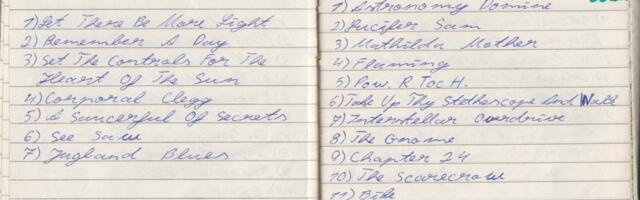 1) Let There Be More Light
2) Remember A Day
3) Set The Controls For The
Heart Of The Sun
4) Corporal Clegg
5) A Saucerful Of Secrets
6) See Saw
7) Jugband Blues
1) Astronomy Domine
2) Lucifer Sam
3) Mathilda Mother
4) Flaming
5) Pow. R Toc H.
6) Take Up Thy Stethoscope And Walk
7) Interstellar Overdrive
8) The Gnome
9) Chapter 24
10) The Scarecrow
11) Bike